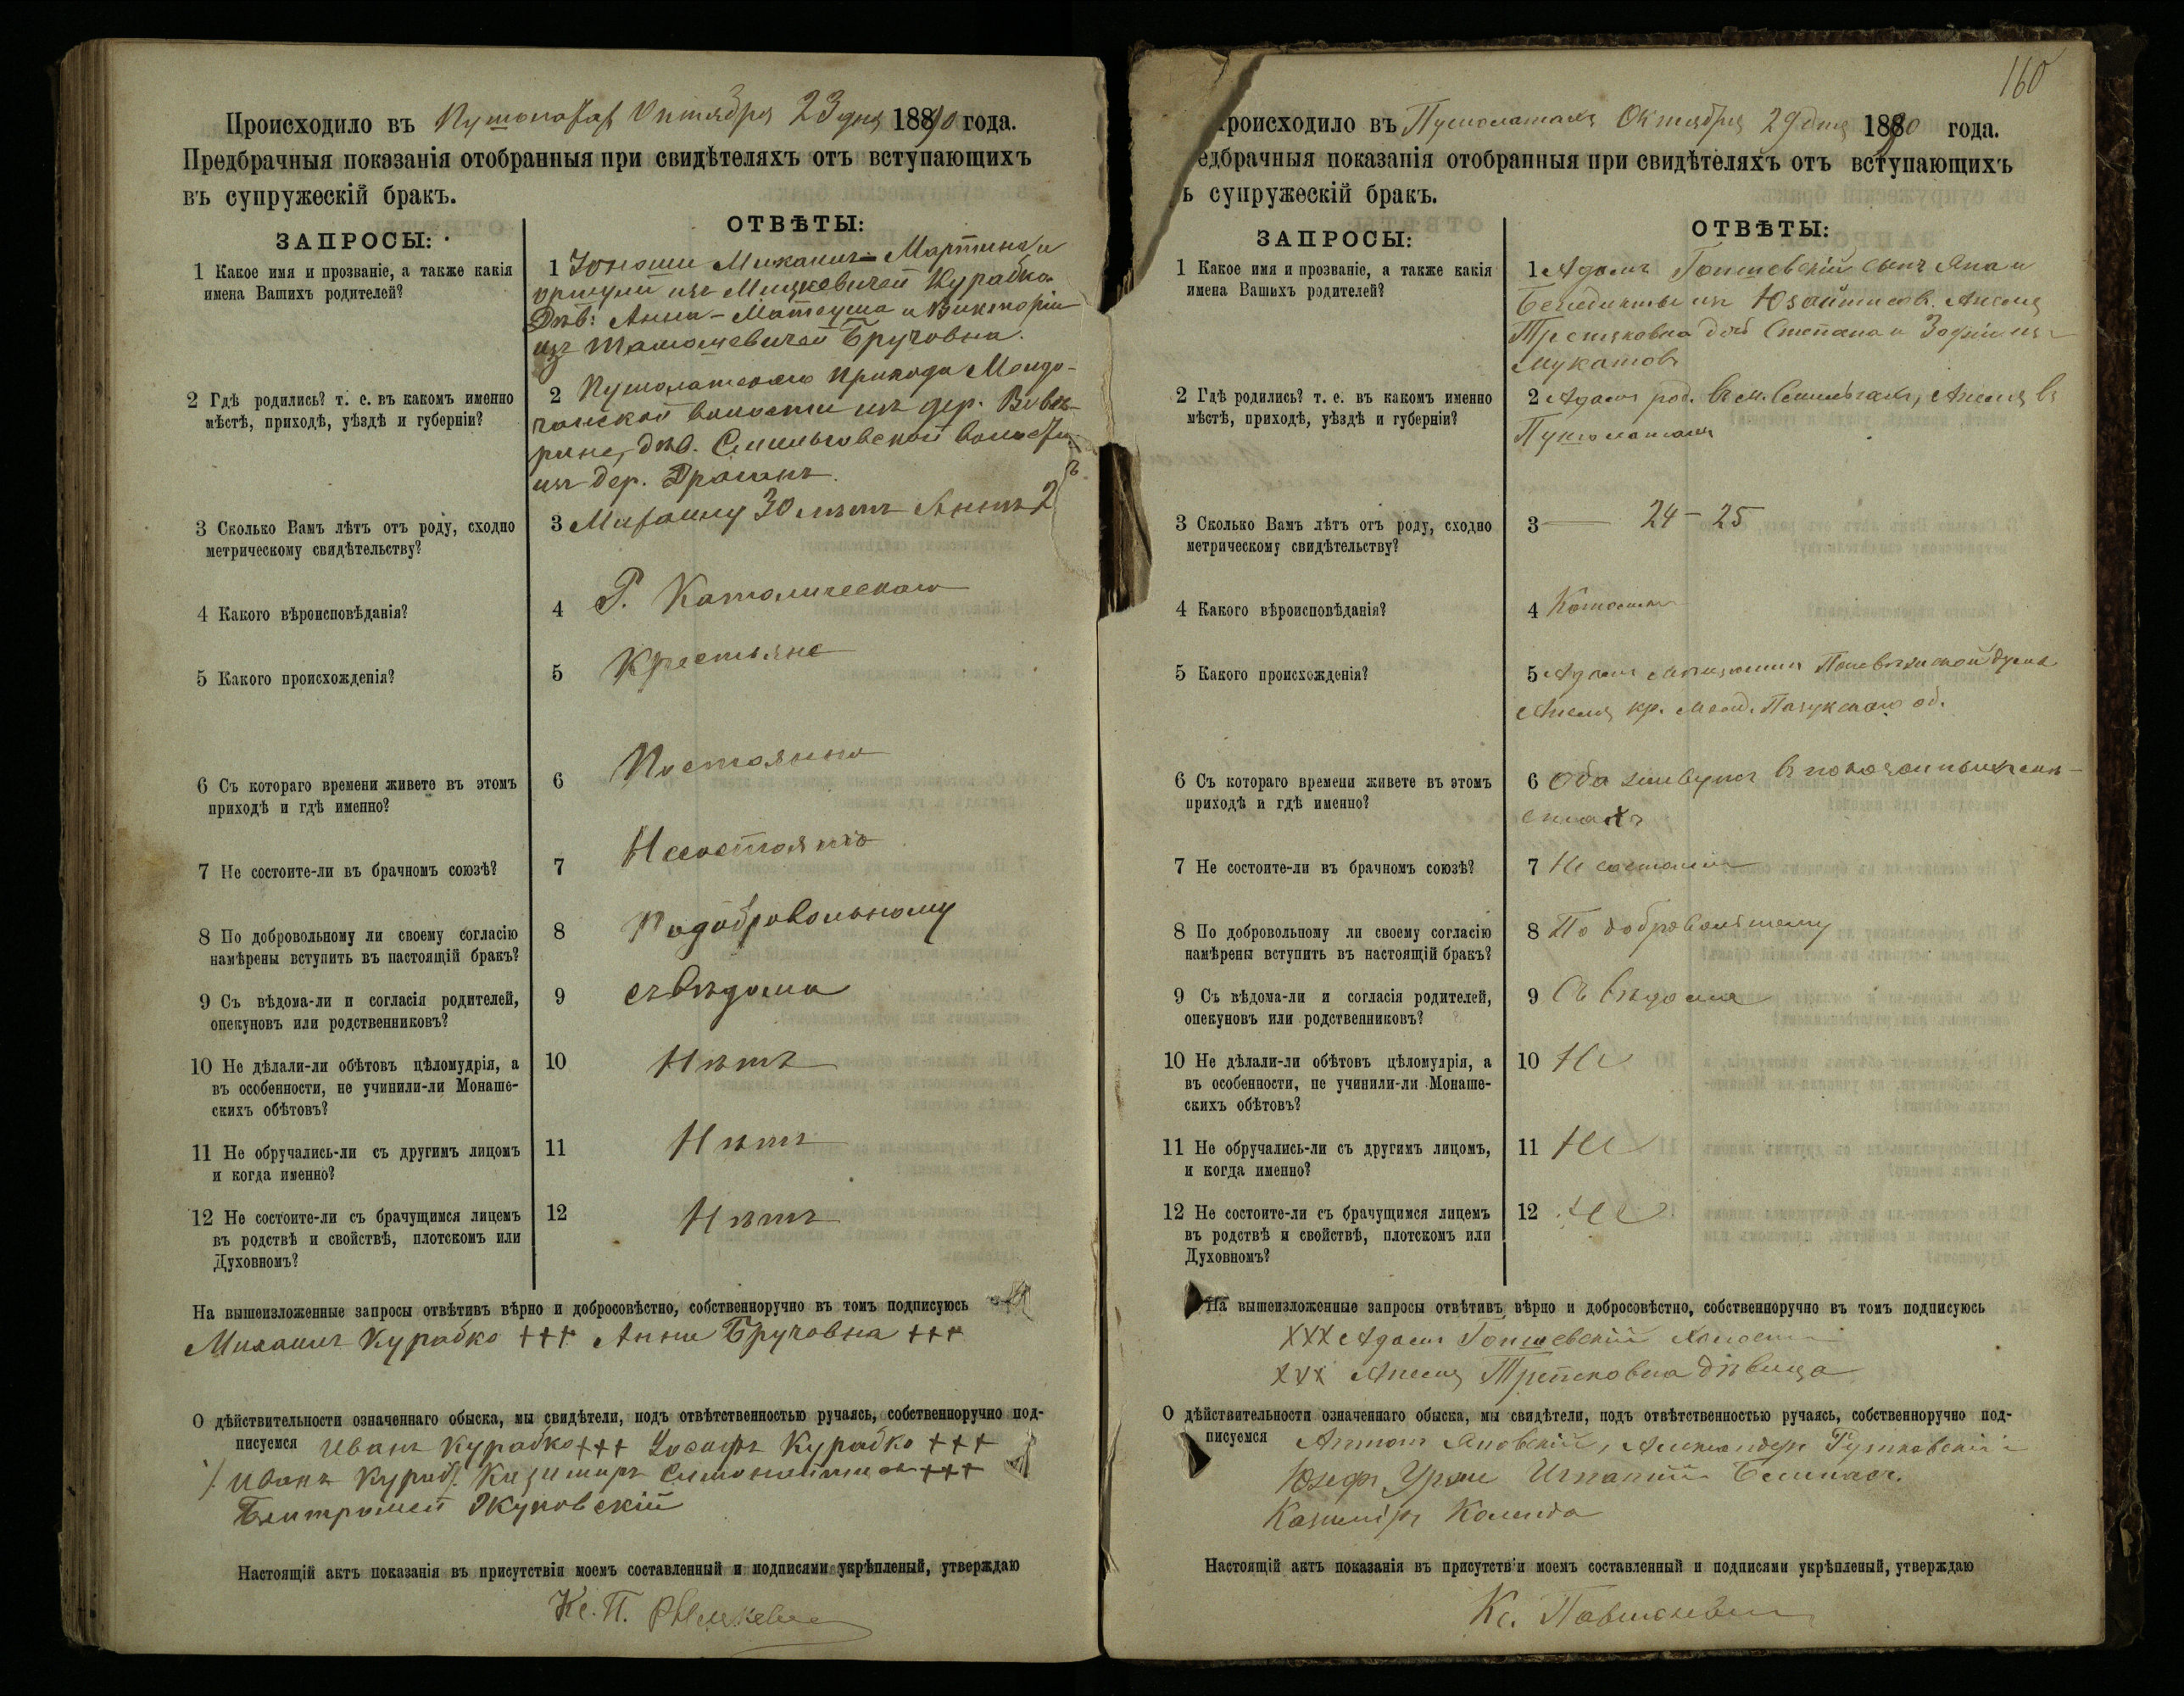 Происходило въ Пушолатахъ Октября 23 дня 1890 года.
Предбрачныя показанія отобранныя при свидѣтеляхъ отъ вступающихъ
въ супружескій бракъ.
ЗАПРОСЫ:
ОТВѢТЫ:
1 Какое имя и прозваніе, а также какія
имена Вашихъ родителей?
1 Юноши Михаилъ – Мартина и
изъ Мицкевичей Курабко
Дѣв: Анна – Матеуша и Викторіи
изъ Бручовна.
2 Гдѣ родились? т. е. въ какомъ именно
мѣстѣ, приходѣ, уѣздѣ и губерніи?
2 Пушолатскаго прихода
волости изъ дер.
дѣв. Смильговской волости
изъ дер. Драганъ
3 Сколько Вамъ лѣтъ отъ роду, сходно
метрическому свидѣтельству?
3 Михаилу 30 лѣтъ Аннѣ 2
4 Какого вѣроисповѣданія?
4 Р. Католическаго
5 Какого происхожденія?
5 Крестьяне
6 Съ котораго времени живете въ этомъ
приходѣ и гдѣ именно?
6 Постоянно
7 Не состоите-ли въ брачномъ союзѣ?
7
8 По добровольному ли своему согласію
намѣрены вступить въ настоящій бракъ?
8 Подобровольному
9 Съ вѣдома-ли и согласія родителей,
опекуновъ или родственниковъ?
9 съ вѣдома
10 Не дѣлали-ли обѣтовъ цѣломудрія, а
въ особенности, не учинили-ли Монаше-
скихъ обѣтовъ?
10 Нѣтъ
11 Не обручались-ли съ другимъ лицомъ
и когда именно?
11 Нѣтъ
12 Не состоите-ли съ брачущимся лицемъ
въ родствѣ и свойствѣ, плотскомъ или
Духовномъ?
12 Нѣтъ
На вышеизложенные запросы отвѣтивъ вѣрно и добросовѣстно, собственноручно въ томъ подписуюсь
Михаилъ Курабко +++ Анна Бручовна +++
О дѣйствительности означеннаго обыска, мы свидѣтели, подъ отвѣтственностью ручаясь, собственноручно под-
писуемся Иванъ Курабко +++ Іосифъ Курабко +++
Иванъ Казимиръ +++
Жуковскій
Настоящій актъ показанія въ присутствіи моемъ составленный и подписями укрѣпленый, утверждаю
Кс. П.
160
Происходило въ Пушолатахъ Октября 29 дня 1890 года.
едбрачныя показанія отобранныя при свидѣтеляхъ отъ вступающихъ
ъ супружескій бракъ.
ЗАПРОСЫ:
ОТВѢТЫ:
1 Какое имя и прозваніе, а также какія
имена Вашихъ родителей?
1 Адамъ сынъ Яна и
Бенедикты изъ Анеля
дочь Степана и Зофіи изъ
2 Гдѣ родились? т. е. въ какомъ именно
мѣстѣ, приходѣ, уѣздѣ и губерніи?
2 Адамъ род. въ м. Смильгахъ, Анеля въ
Пушолатахъ
3 Сколько Вамъ лѣтъ отъ роду, сходно
метрическому свидѣтельству?
3 — 24 – 25
4 Какого вѣроисповѣданія?
4
5 Какого происхожденія?
5 Адамъ мѣщанинъ
Анеля кр.
6 Съ котораго времени живете въ этомъ
приходѣ и гдѣ именно?
6 Оба живутъ въ
7 Не состоите-ли въ брачномъ союзѣ?
7 Не состоимъ
8 По добровольному ли своему согласію
намѣрены вступить въ настоящій бракъ?
8 По добровольному
9 Съ вѣдома-ли и согласія родителей,
опекуновъ или родственниковъ?
9 Съ вѣдома
10 Не дѣлали-ли обѣтовъ цѣломудрія, а
въ особенности, не учинили-ли Монаше-
скихъ обѣтовъ?
10 Не
11 Не обручались-ли съ другимъ лицомъ,
и когда именно?
11 Не
12 Не состоите-ли съ брачущимся лицемъ
въ родствѣ и свойствѣ, плотскомъ или
Духовномъ?
12 Не
На вышеизложенные запросы отвѣтивъ вѣрно и добросовѣстно, собственноручно въ томъ подписуюсь
XXX Адамъ
XXX Анеля дѣвица
О дѣйствительности означеннаго обыска, мы свидѣтели, подъ отвѣтственностью ручаясь, собственноручно под-
писуемся Антонъ Яновскій, Александръ Рутковскій
Юзефъ Игнатій
Казимиръ
Настоящій актъ показанія въ присутствіи моемъ составленный и подписями укрѣпленый, утверждаю
Кс.